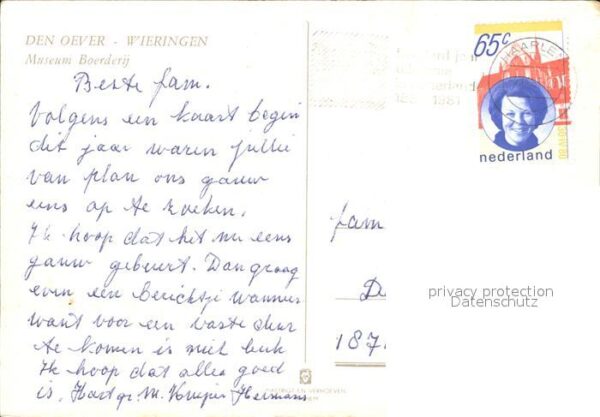 DEN OEVER - WIERINGEN
Museum Boerderij
Beste fam.
Volgens een kaart begin
dit jaar waren jullie
van plan ons gauw
eens op te zoeken.
Ik hoop dat het nu eens
gauw gebeurt. Dan graag
even een berichtje wanneer
want voor een vaste deur
te komen is niet leuk
Ik hoop dat alles goed
is. Hart gr. M. Hermans
65c
HAARLEM
1981
nederland
fam
De
187
privacy protection
Datenschutz